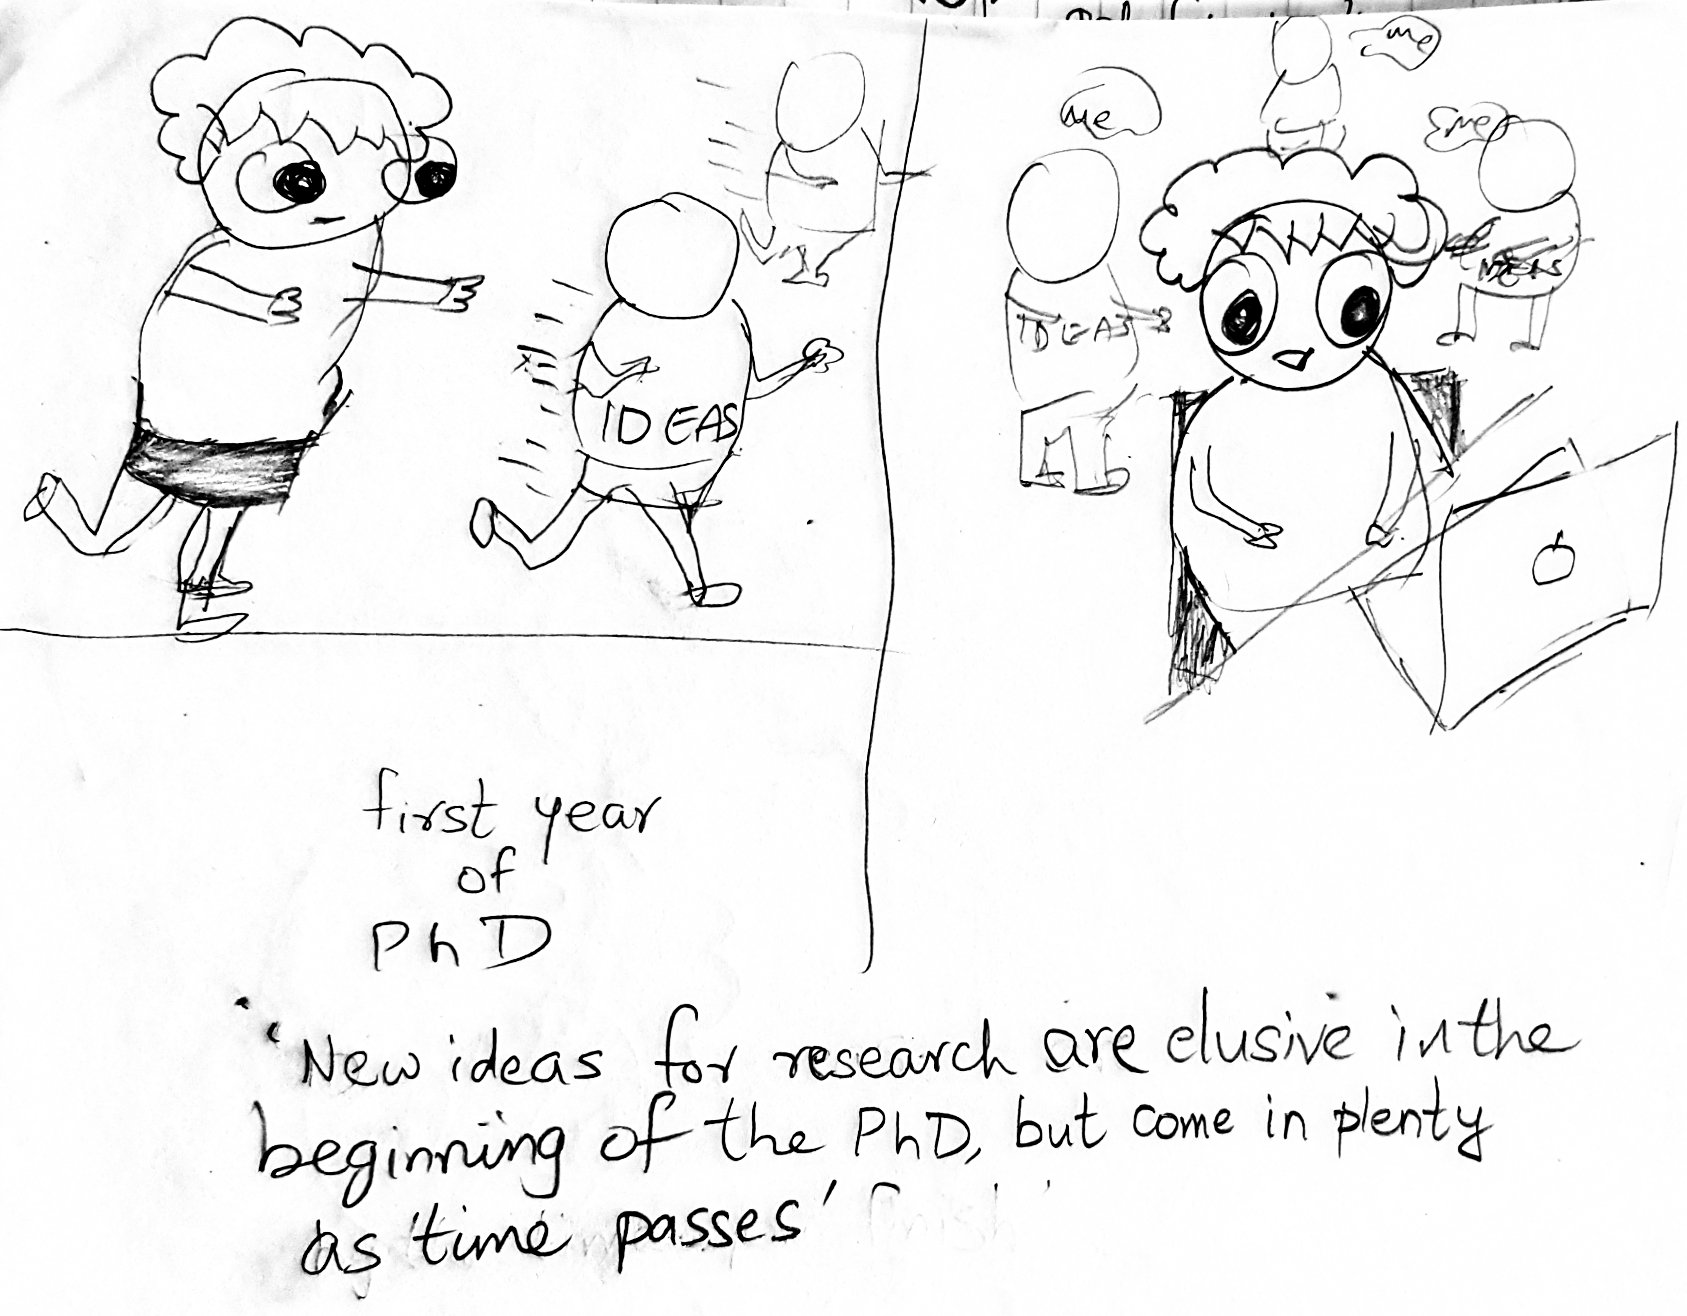 me
me
me
IDEAS
IDEAS
IDEAS
first year
of
PhD
'New ideas for research are elusive in the
beginning of the PhD, but come in plenty
as time passes'